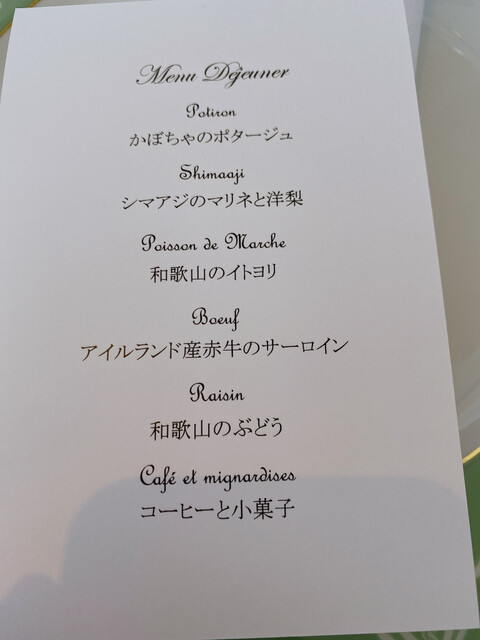 Menu Déjeuner
Potiron
かぼちゃのポタージュ
Shimaaji
シマアジのマリネと洋梨
Poisson de Marche
和歌山のイトヨリ
Boeuf
アイルランド産赤牛のサーロイン
Raisin
和歌山のぶどう
Café et mignardises
コーヒーと小菓子